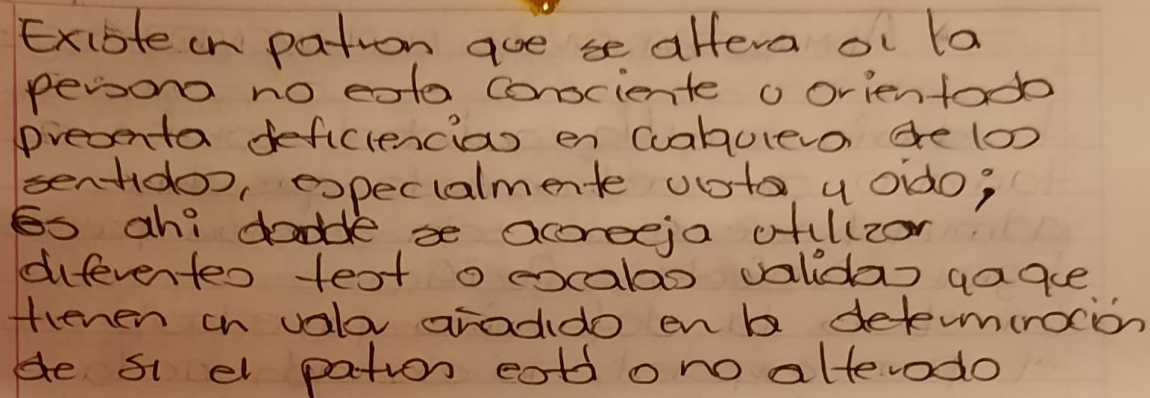 Existe un patron que se altera si la
persona no esta consciente u orientada
presenta deficiencias en cualquiera de los
sentidos, especialmente vista y oido;
Es ahi dodde se aconseja utilizar
diferentes test o escalas validas ya que
tienen un valor añadido en la determinación
de si el patron está o no alterado